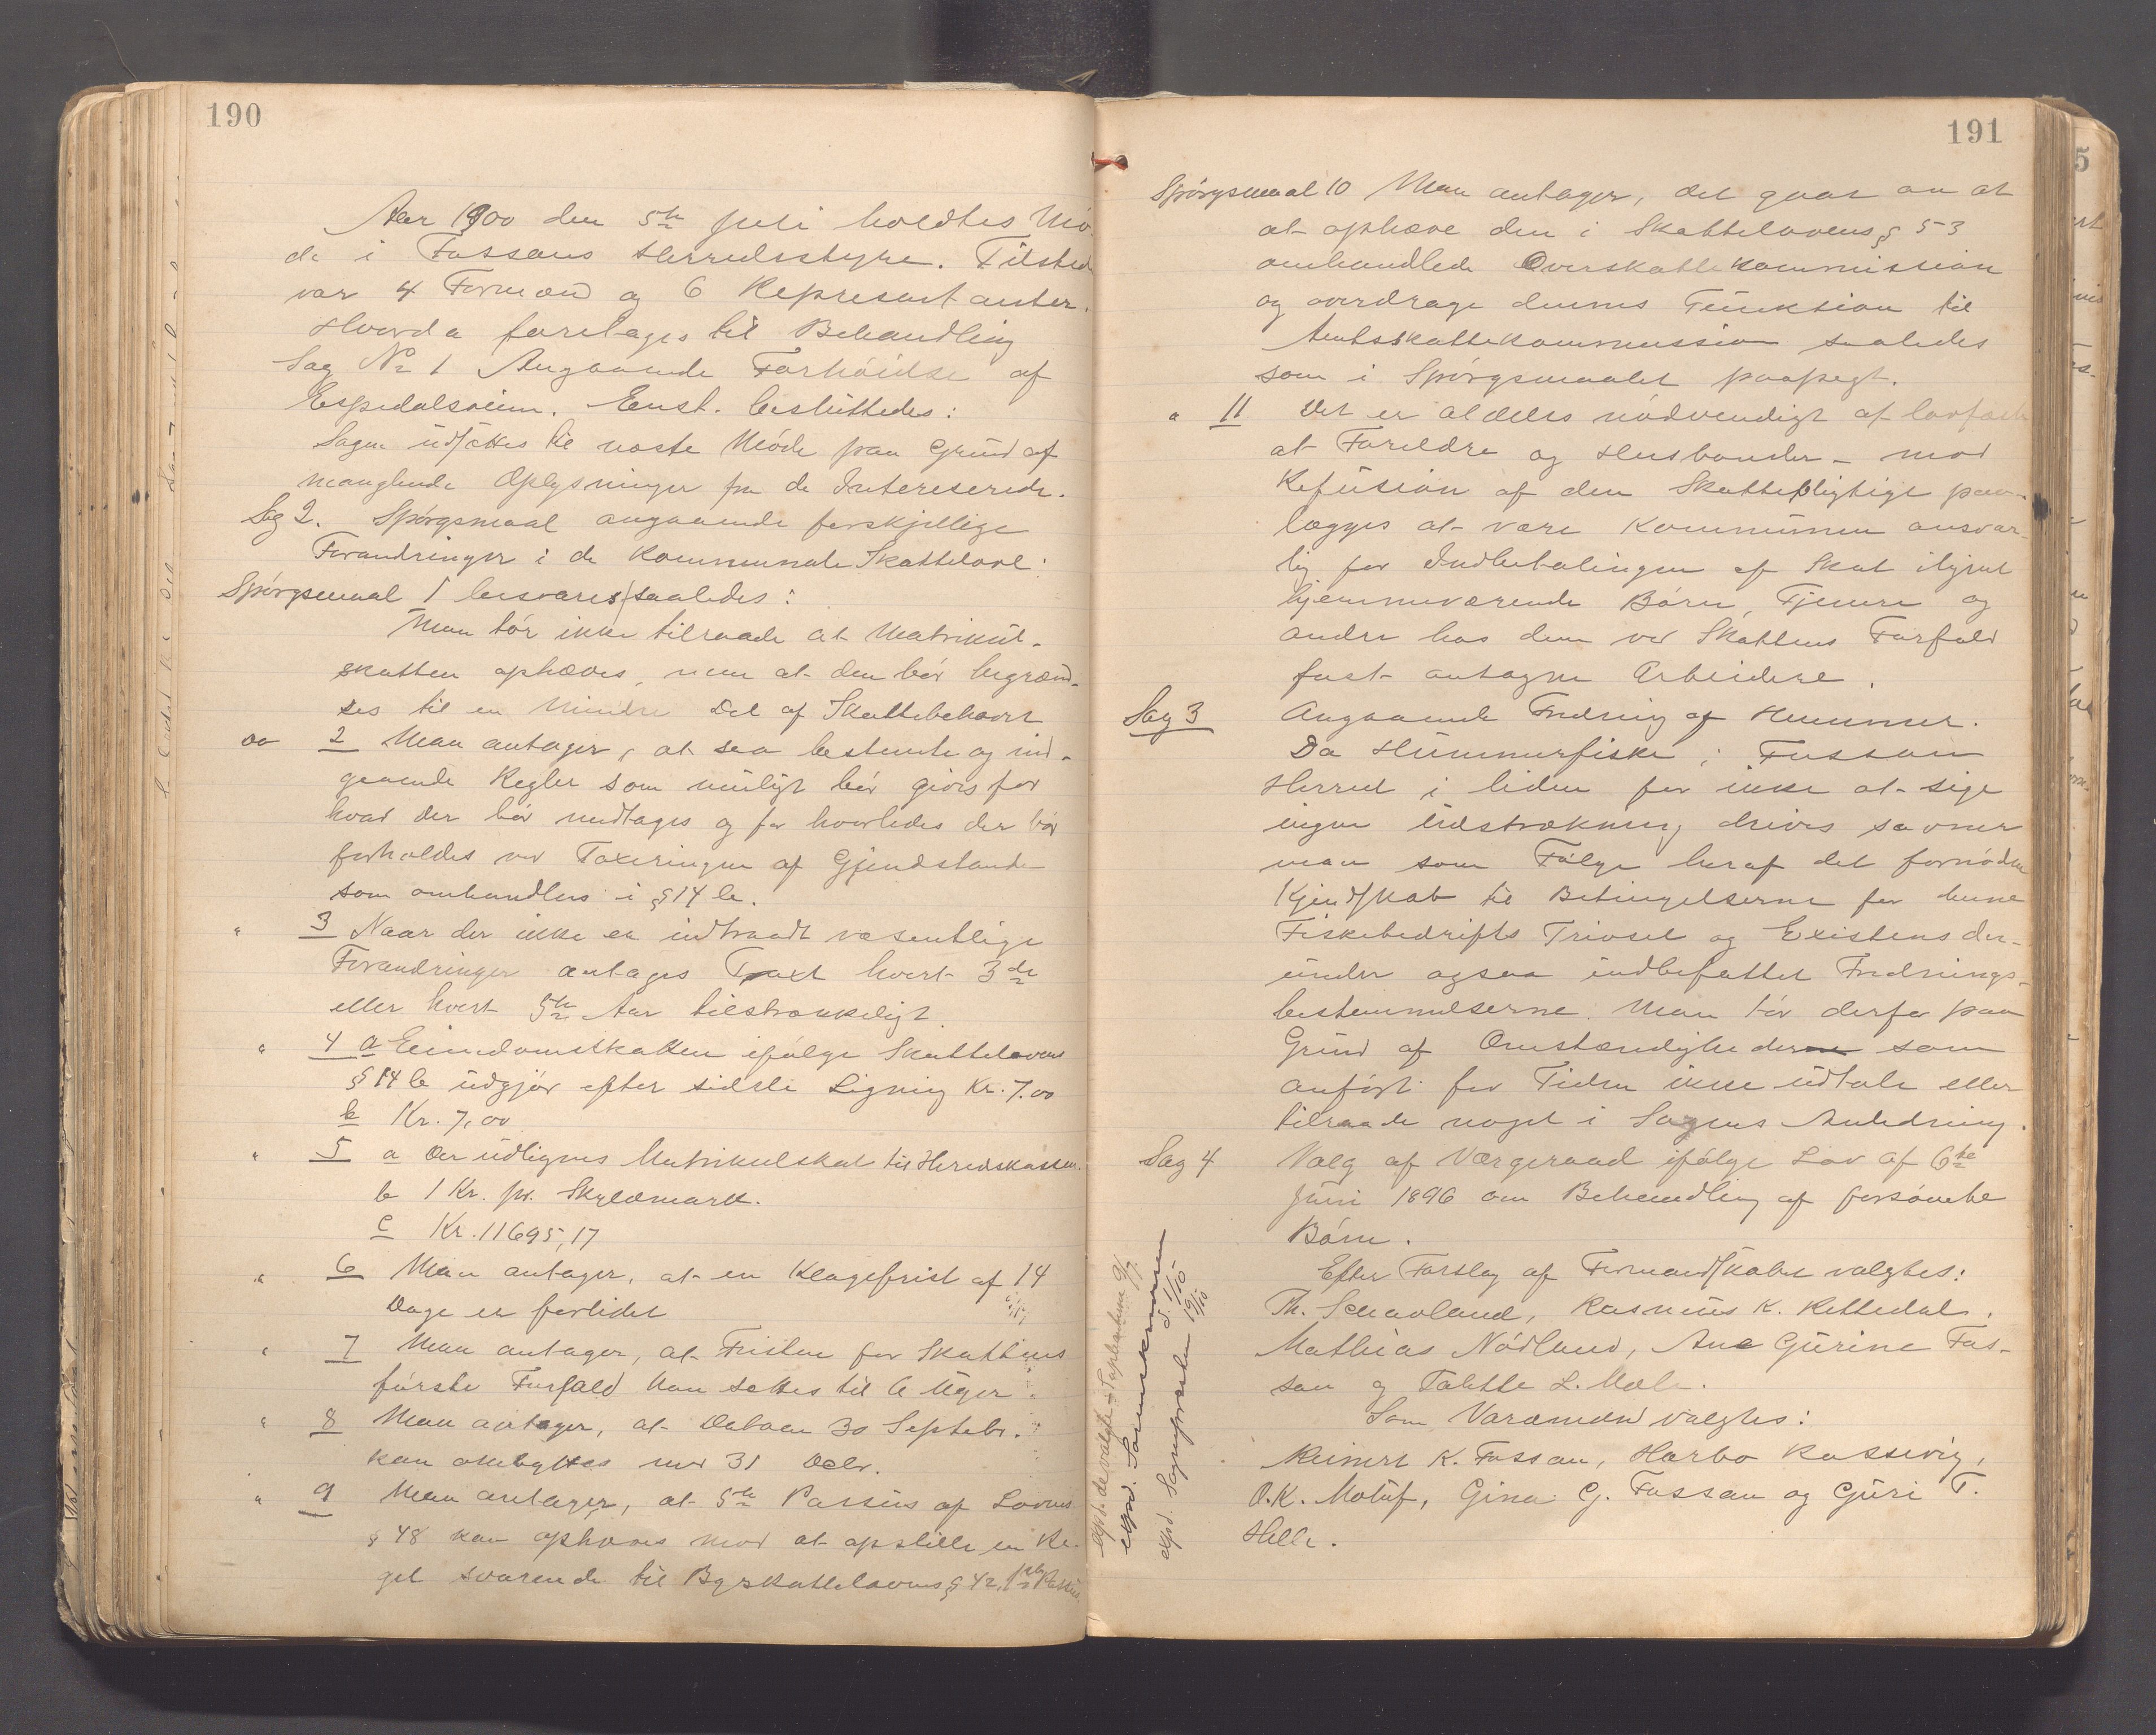 190
Aar 1900 den 5te Juli holdtes Mö-
de i Fossans Herredsstyre. Tilstede
var 4 Formænd og 6 Repræsentanter.
Hvorda foretages til Behandling
Sag No 1 Angaaende Forhöidse af
Espedalsveien. Enst. besluttedes:
Sagen udsættes til næste Möde paa Grund af
manglende Oplysninger fra de Intereserede.
Sag 2. Spörgsmaal angaaende forskjellige
Forandringer i de kommunale Skattelove:
Spörgsmaal 1 besvares saaledes:
Man tör ikke tilraade at Matrikul-
skatten ophæves, men at den bör begrænd-
ses til en Mindre Del af Skattebehovet
" 2 Man antager, at saa bestemte og ind-
gaaende Regler som muligt bör gives for
hvad der bör undtages og for hvorledes der bör
forholdes ved Taxeringen af Gjendstande
som omhandles i § 14 b.
" 3 Naar der ikke er indtraadt væsentlige
Forandringer antages Taxt hvert 3de
eller hvert 5te Aar tilstrækkeligt.
" 4 a Eiendomsskatten ifölge Skattelovens
§ 14 b udgjör efter sidste Ligning Kr. 7.00
b Kr. 7,00
" 5 a Der udlignes Matrikulskat til Heredskassen.
b 1 Kr. pr. Skyldmark.
c Kr. 11695,17
" 6 Man antager, at en Klagefrist af 14
Dage er forlidet
" 7 Man antager, at Fristen for Skattens
förste Forfald kan sættes til 6 Uger.
" 8 Man antager, at Datoen 30 Septebr.
kan ombyttes med 31 Debr.
" 9 Man antager, at 5te Passus af Lovens
§ 48 kan ophæves mod at opstille en Re-
gel svarende til Byskattelovens § 42, 1ste Passus
191
Spörgsmaal 10 Man antager, det gaar an at
at ophæve den i Skattelovens § 53
omhandlede Overskattekommission
og overdrage dennes Funktion til
Amtsskattekommission saaledes
som i Spörgsmaalet paapegt.
" 11 Det er aldeles nödvendigt af lovfæste
at Foreldre og Husbonder – mod
Refusion af den Skattepligtige paa-
lægges at være Kommunen ansvar-
lig for Indbetalingen af Skat ilignet
hjemmeværende Börn, Tjenere og
andre hos dem ved Skattens Forfald
fast antagne Arbeidere.
Sag 3 Angaaende Fredning af Hummer.
Da Hummerfiske i Fossan
Herred i liden for ikke at sige
ingen Udstrækning drives savner
man som Fölge heraf det fornödne
Kjendskab til Betingelserne for denne
Fiskebedrifts Trivsel og Existens der-
under ogsaa indbefattet Frednings-
bestemmelserne. Man tör derfor paa
Grund af Omstændighederne som
anfört for Tiden ikke udtale eller
tilraade noget i Sagens Anledning.
Sag 4 Valg af Værgeraad ifölge Lov af 6te
Juni 1896 om Behandling af forsömte
Börn.
Efter Forslag af Formandskabet valgtes:
Th. Scharvland, Rasmus K. Rettedal,
Mathias Nödland, Ane Gurine Fos-
san og Tabitte L. Mæle.
Som Varamænd valgtes:
Reinert K. Fossan, Harbo Rossevig,
O. K. Motuf, Gina G. Fossan og Guri T.
Helle.
expd. de valgte + Supleanterne 9/7
expd. Lensmanden d. 1/10
expd. Sognepræsten 19/10